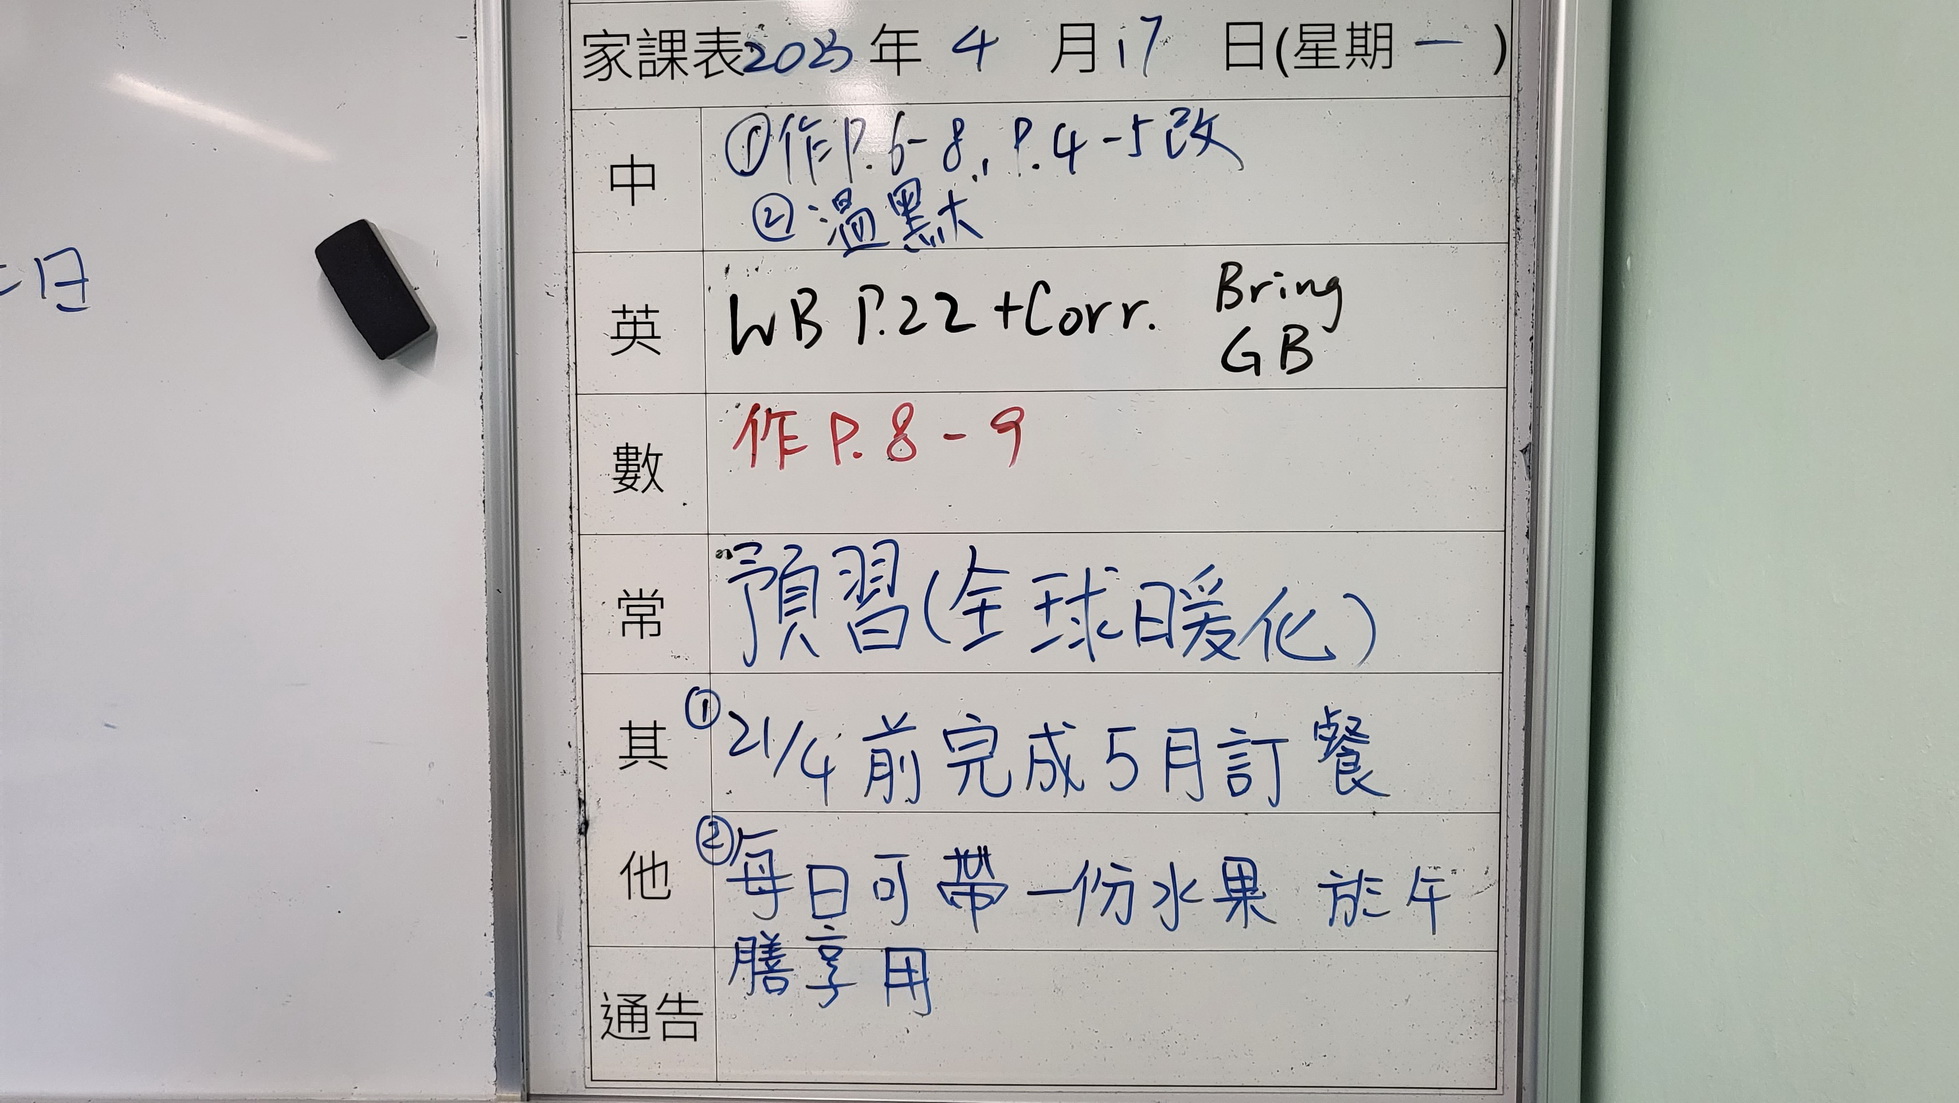 家課表2023年 4 月17 日(星期一)
中
①作P.6-8, P.4-5改
②溫默
英
WB P.22+Corr. Bring
GB
數
作P.8-9
常
預習(全球暖化)
其
①21/4前完成5月訂餐
他
②每日可帶一份水果 於午
膳享用
通告
日